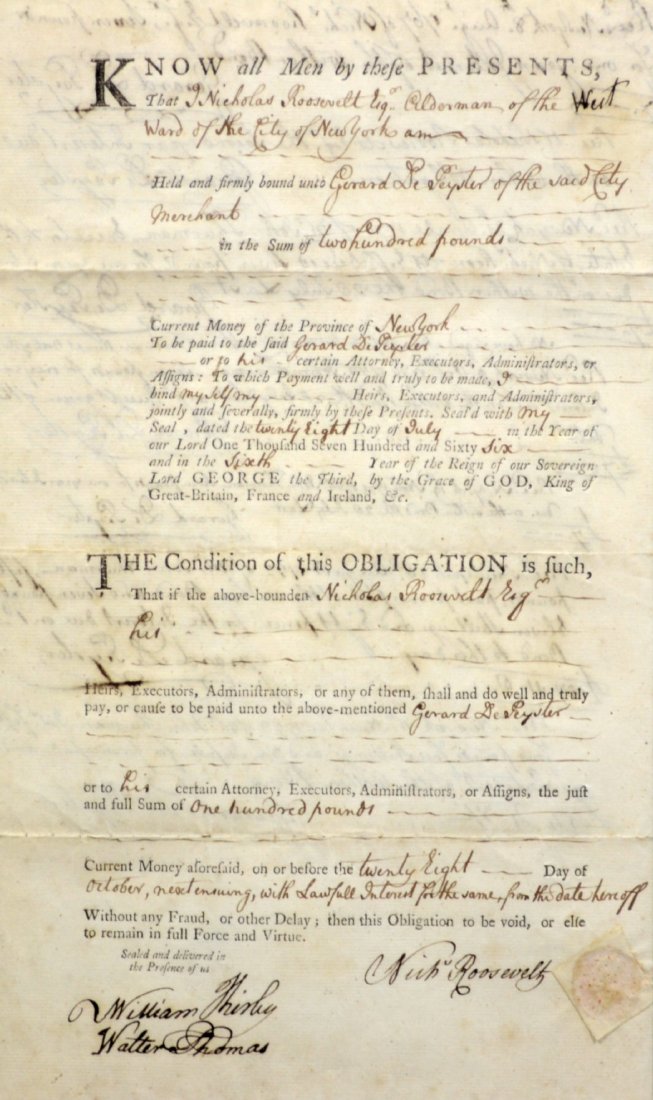 KNOW all Men by theſe PRESENTS,
That I Nicholas Roosevelt Esqr. Alderman of the West
Ward of the City of New York am
Held and firmly bound unto Gerard De Peyster of the said City
Merchant
in the Sum of two hundred pounds
Current Money of the Province of New York
To be paid to the ſaid Gerard De Peyster
or to his certain Attorney, Executors, Adminiſtrators, or
Aſſigns: To which Payment well and truly to be made, I
bind my Self my Heirs, Executors, and Adminiſtrators,
jointly and ſeverally, firmly by theſe Preſents. Seal'd with My
Seal, dated the twenty Eight Day of July in the Year of
our Lord One Thouſand Seven Hundred and Sixty Six
and in the Sixth Year of the Reign of our Sovereign
Lord GEORGE the Third, by the Grace of GOD, King of
Great-Britain, France and Ireland, &c.
THE Condition of this OBLIGATION is ſuch,
That if the above-bounden Nicholas Roosevelt Esqr.
his
Heirs, Executors, Adminiſtrators, or any of them, ſhall and do well and truly
pay, or cauſe to be paid unto the above-mentioned Gerard De Peyster
or to his certain Attorney, Executors, Adminiſtrators, or Aſſigns, the juſt
and full Sum of One hundred pounds
Current Money aforeſaid, on or before the twenty Eight Day of
October, next ensuing, with Lawfull Interest for the same, from the date here off
Without any Fraud, or other Delay; then this Obligation to be void, or elſe
to remain in full Force and Virtue.
Sealed and delivered in
the Preſence of us
Nichs Roosevelt
William
Walter Thomas